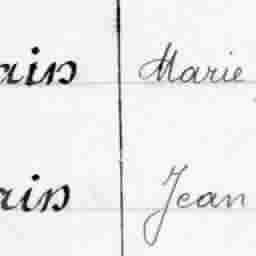 ain Marie
rin Jean